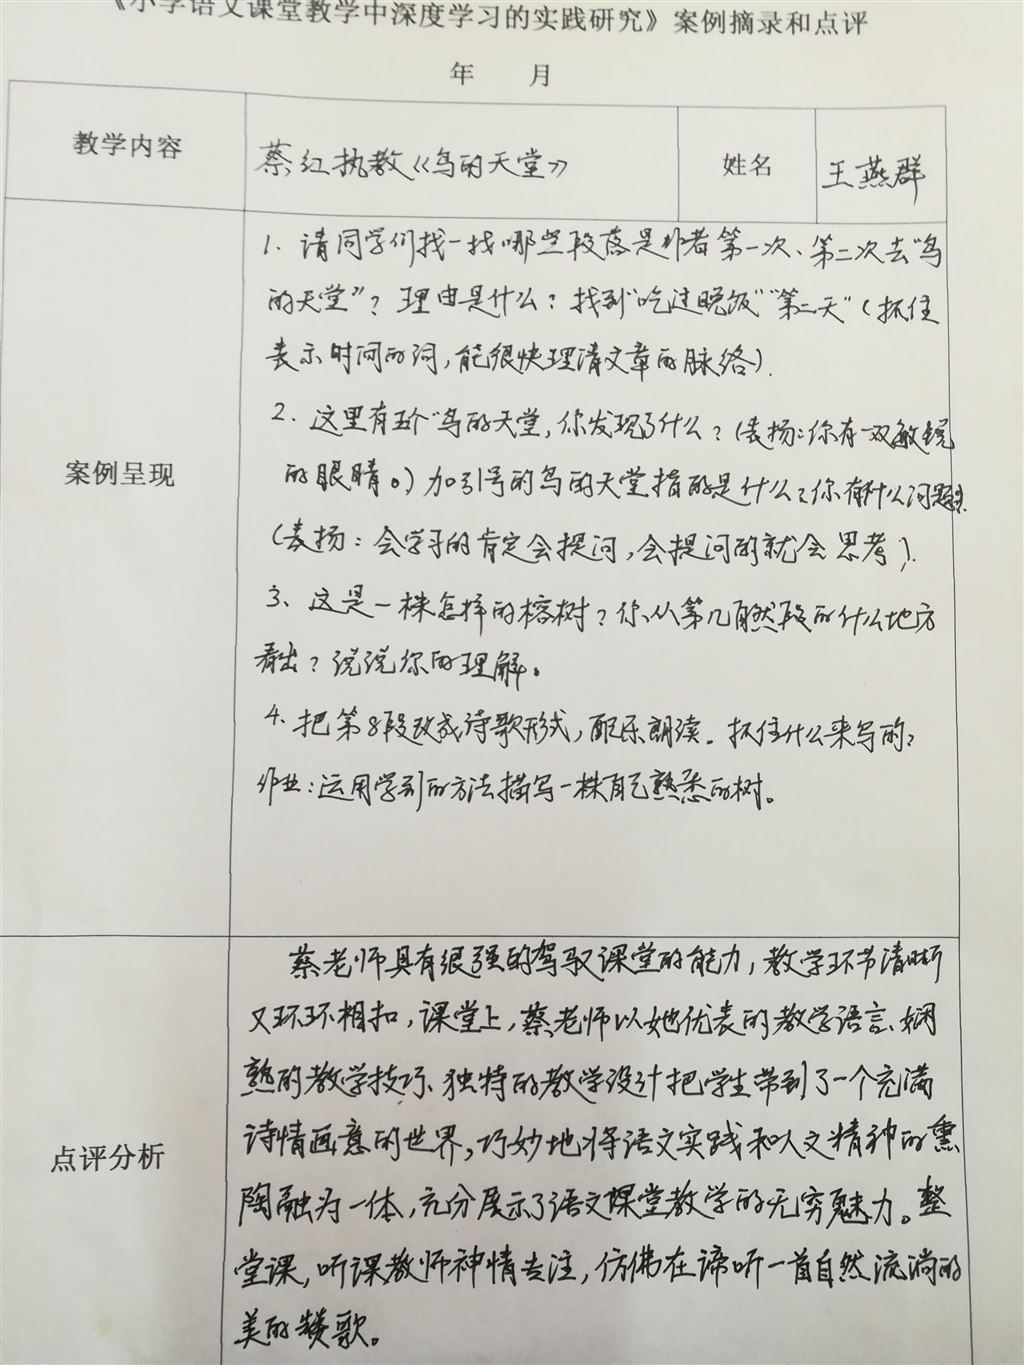 《小学语文课堂教学中深度学习的实践研究》案例摘录和点评
年 月
教学内容
蔡红执教《鸟的天堂》
姓名
王燕群
案例呈现
1. 请同学们找一找哪些段落是作者第一次、第二次去“鸟
的天堂”？理由是什么？找到“吃过晚饭”“第二天”（抓住
表示时间的词，能很快理清文章的脉络）.
2. 这里有五个“鸟的天堂，你发现了什么？（表扬：你有一双敏锐
的眼睛。）加引号的鸟的天堂指的是什么？你有什么问题？
（表扬：会学习的肯定会提问，会提问的就会思考）.
3、这是一株怎样的榕树？你从第几自然段的什么地方
看出？说说你的理解。
4. 把第8段改成诗歌形式，配乐朗读。抓住什么来写的？
作业：运用学到的方法描写一株自己熟悉的树。
点评分析
蔡老师具有很强的驾驭课堂的能力，教学环节清晰
又环环相扣，课堂上，蔡老师以她优美的教学语言、娴
熟的教学技巧、独特的教学设计把学生带到了一个充满
诗情画意的世界，巧妙地将语文实践和人文精神的熏
陶融为一体，充分展示了语文课堂教学的无穷魅力。整
堂课，听课教师神情专注，仿佛在谛听一首自然流淌的
美的赞歌。